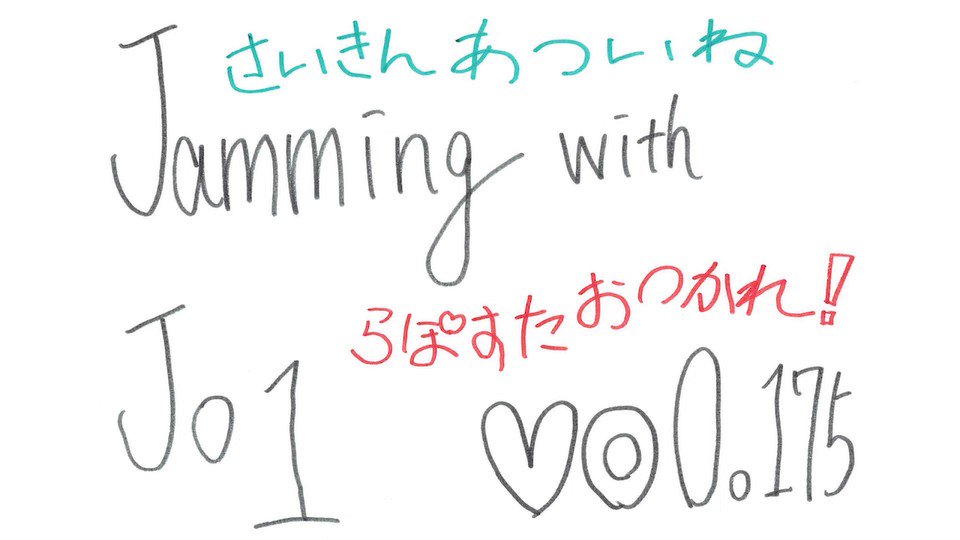 さいきんあついね
Jamming with
らぽすたおつかれ!
Jo1
♡◎0.175